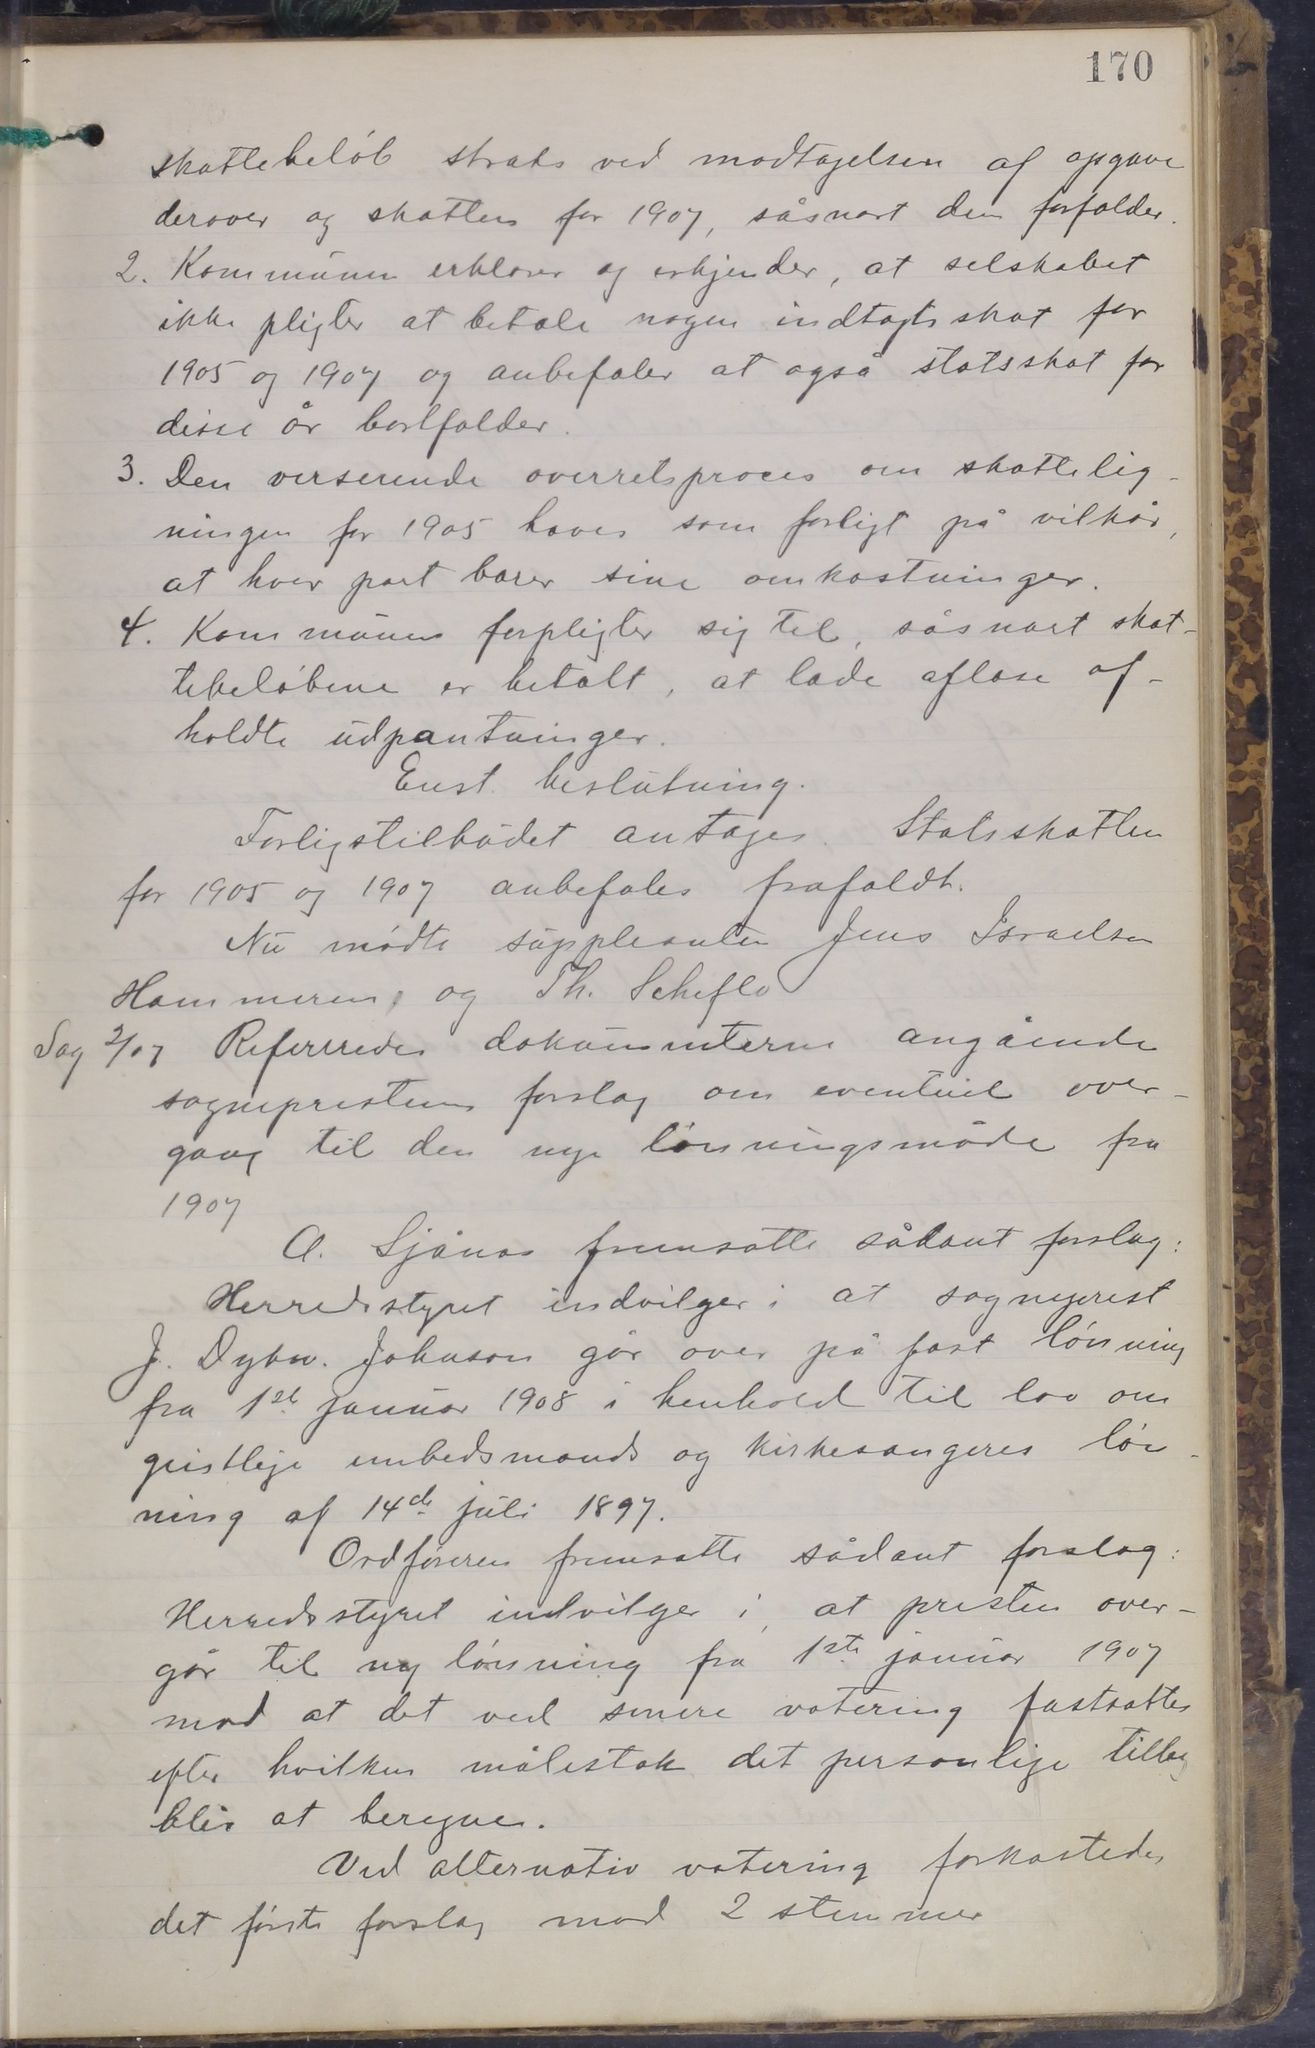 170
skattebeløb straks ved modtagelsen af opgave
derover og skatten for 1907, såsnart den forfalder.
2. Kommunen erklærer og erkjender, at selskabet
ikke pligter at betale nogen indtægtsskat for
1905 og 1907 og anbefaler at også statsskat for
disse år bortfalder.
3. Den verserende overretsproces om skattelig-
ningen for 1905 hæves som forligt på vilkår,
at hver part bærer sine omkostninger.
4. Kommunen forpligter sig til, såsnart skat-
tebeløbene er betalt, at lade afløse af-
holdte udpantninger.
Enst. beslutning.
Forligstilbudet antages. Statsskatten
for 1905 og 1907 anbefales frafaldt.
Nu mødte suppleanten Jens Israelsen
Hammeren, og Th. Scheflo
Sag 2/07 Refereredes dokumenterne angående
sogneprestens forslag om eventuel over-
gang til den nye lønningsmåde fra
1907
A. Sjånæs fremsatte sådant forslag:
Herredsstyret indvilger i at sogneprest
J. Dybw. Johnson går over på fast lønning
fra 1ste januar 1908 i henhold til lov om
geistlige embedsmænds og kirkesangeres løn-
ning af 14de juli 1897.
Ordføreren fremsatte sådant forslag:
Herredsstyret indvilger i, at presten over-
går til ny lønning fra 1ste januar 1907
mod at det ved senere votering fastsættes
efter hvilken målestok det personlige tillæg
blir at beregne.
Ved alternativ votering forkastedes
det første forslag mod 2 stemmer